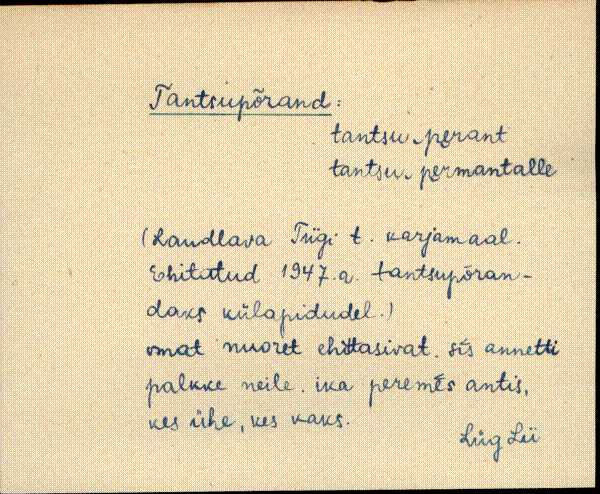 Tantsupõrand:
tantsu‿pe̮rant
tantsu‿pe̮rmantalle
(Laudlava Tiigi t. karjamaal.
Ehitatud 1947.a. tantsupõran-
daks külapidudel.)
omat nuoret ehittasivat. sīs annetti
palkke neile. ika peremēs antis,
kes ühe, kes kaks.
Lüg Lü